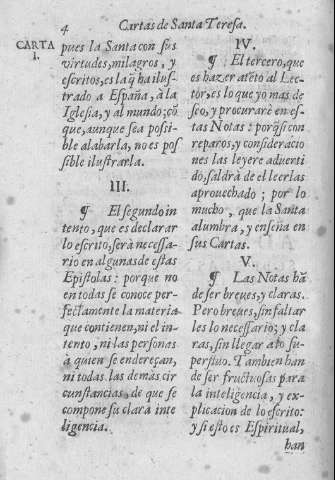 4 Cartas de Santa Teresa.
CARTA
I.
pues la Santa con sus
virtudes, milagros, y
escritos, es la q̃ ha ilus-
trado a España, à la
Iglesia, y al mundo; cõ
que, aunque sea posi-
ble alabarla, no es pos
sible ilustrarla.
III.
¶ El segundo in
tento, que es declarar
lo escrito, serà necessa-
rio en algunas de estas
Epistolas: porque no
en todas se conoce per-
fectamente la materia
que contienen, ni el in-
tento, ni las personas
à quien se endereçan,
ni todas las demàs cir
cunstancias, de que se
compone su clara inte
ligencia.
IV.
¶ : El tercero, que
es hazer afeto al Lec-
tor, es lo que yo mas de
seo, y procurarè en es-
tas Notas: porq̃ si con
reparos, y consideracio
nes las leyere adverti
do, saldrà de el leerlas
aprouechado; por lo
mucho, que la Santa
alumbra, y enseña en
sus Cartas.
V.
¶ Las Notas hã
de ser breues, y claras.
Pero breues, sin faltar
les lo necessario; y cla
ras, sin llegar a lo su-
perfluo. Tambien han
de ser fructuosas para
la inteligencia, y ex-
plicacion de lo escrito:
y si esto es Espiritual,
han